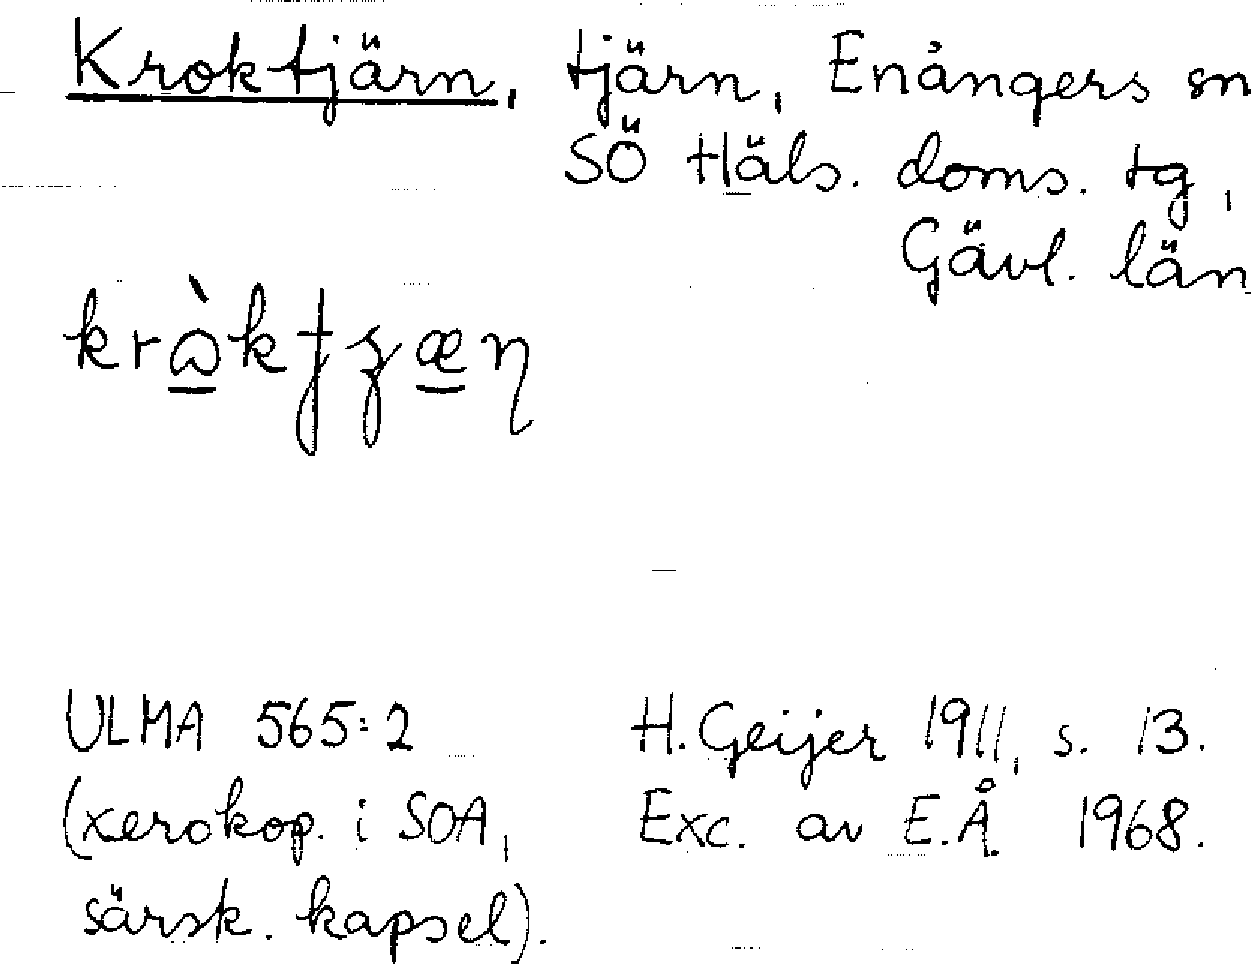 Kroktjärn, tjärn, Enångers sn
SÖ Häls. doms. tg,
Gävl. län
ULMA 565:2 H. Geijer 1911, s. 13.
(xerokop. i SOA, Exc. av E.Å. 1968.
särsk. kapsel).